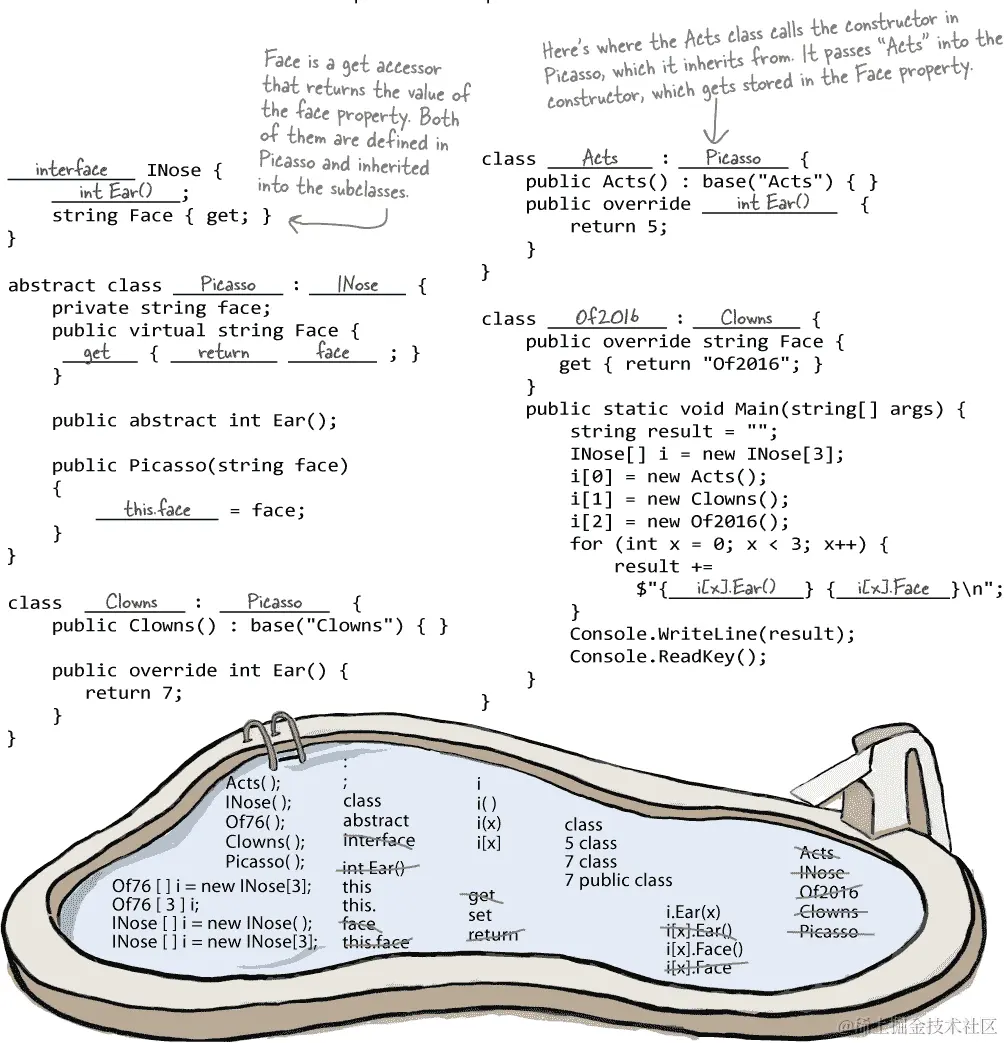 Face is a get accessor
that returns the value of
the face property. Both
of them are defined in
Picasso and inherited
into the subclasses.
interface INose {
int Ear() ;
string Face { get; }
}
abstract class Picasso : INose {
private string face;
public virtual string Face {
get { return face ; }
}
public abstract int Ear();
public Picasso(string face)
{
this.face = face;
}
}
class Clowns : Picasso {
public Clowns() : base("Clowns") { }
public override int Ear() {
return 7;
}
}
Here's where the Acts class calls the constructor in
Picasso, which it inherits from. It passes “Acts” into the
constructor, which gets stored in the Face property.
class Acts : Picasso {
public Acts() : base("Acts") { }
public override int Ear() {
return 5;
}
}
class Of2016 : Clowns {
public override string Face {
get { return "Of2016"; }
}
public static void Main(string[] args) {
string result = "";
INose[] i = new INose[3];
i[0] = new Acts();
i[1] = new Clowns();
i[2] = new Of2016();
for (int x = 0; x < 3; x++) {
result +=
$"{ i[x].Ear() } { i[x].Face }\n";
}
Console.WriteLine(result);
Console.ReadKey();
}
}
Acts( );
INose( );
Of76( );
Clowns( );
Picasso( );
Of76 [ ] i = new INose[3];
Of76 [ 3 ] i;
INose [ ] i = new INose( );
INose [ ] i = new INose[3];
:
;
class
abstract
interface
int Ear()
this
this.
face
this.face
i
i( )
i(x)
i[x]
get
set
return
class
5 class
7 class
7 public class
i.Ear(x)
i[x].Ear()
i[x].Face()
i[x].Face
Acts
INose
Of2016
Clowns
Picasso
@稀土掘金技术社区